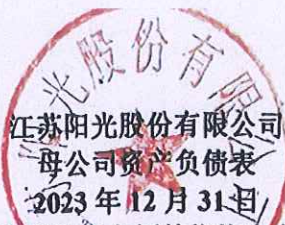 光股份有限公
江苏阳光股份有限公司
母公司资产负债表
2023年12月31日